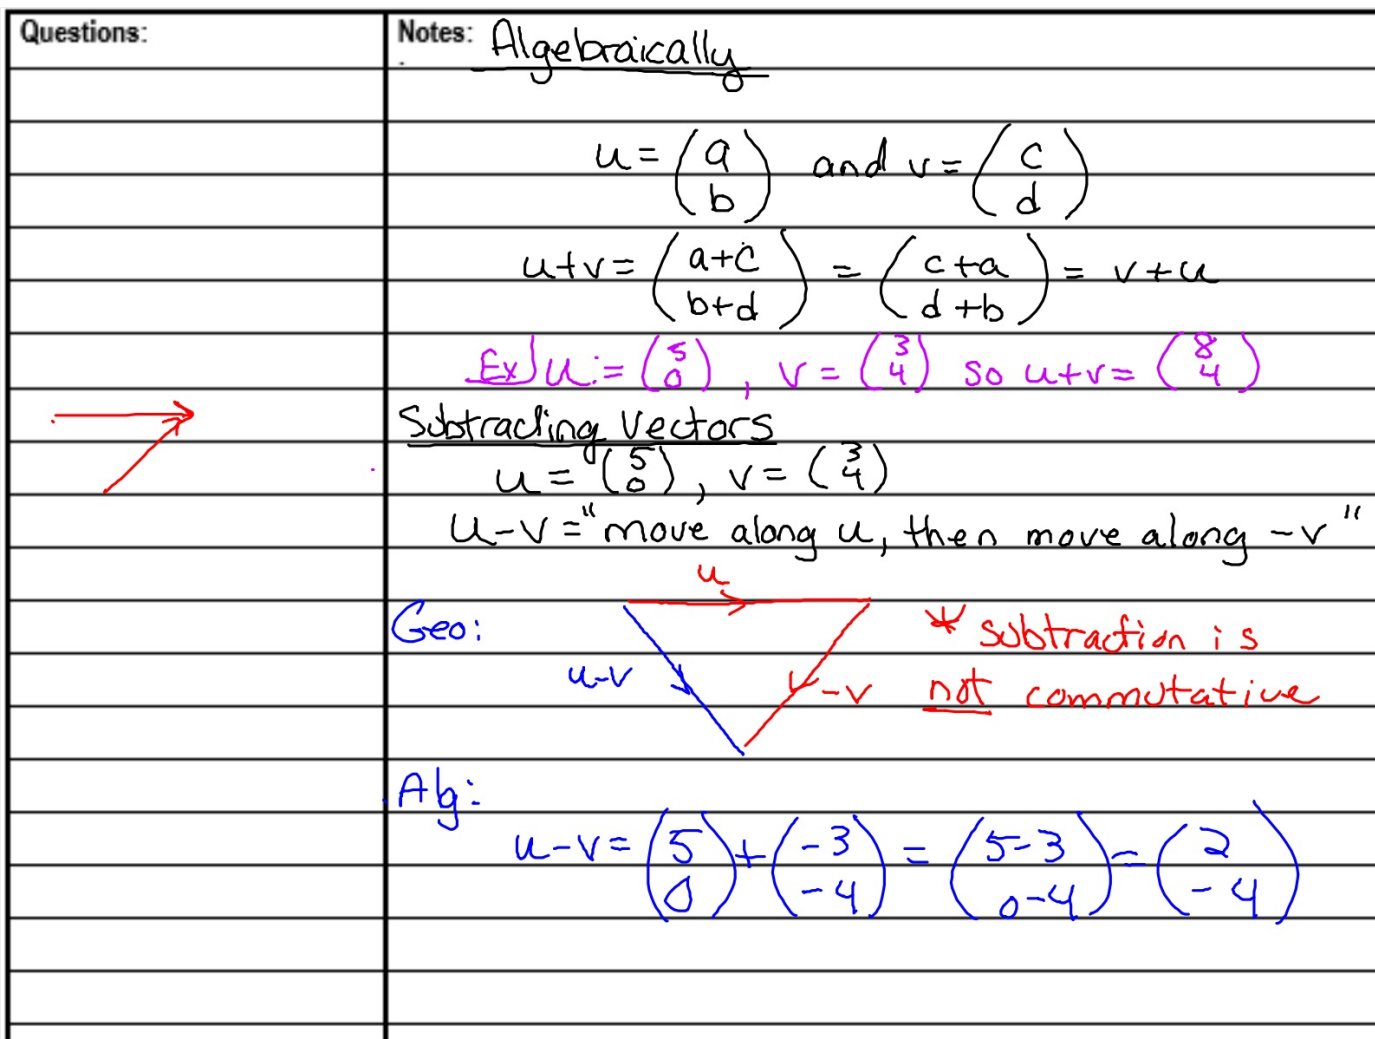 Questions:
Notes: Algebraically
u = (a b) and v = (c d)
u+v = (a+c b+d) = (c+a d+b) = v+u
Ex) u = (5 0), v = (3 4) so u+v = (8 4)
Subtracting Vectors
u = (5 0), v = (3 4)
u-v = "move along u, then move along -v"
u
Geo:
* subtraction is
u-v
-v
not commutative
Alg:
u-v = (5 0) + (-3 -4) = (5-3 0-4) = (2 -4)